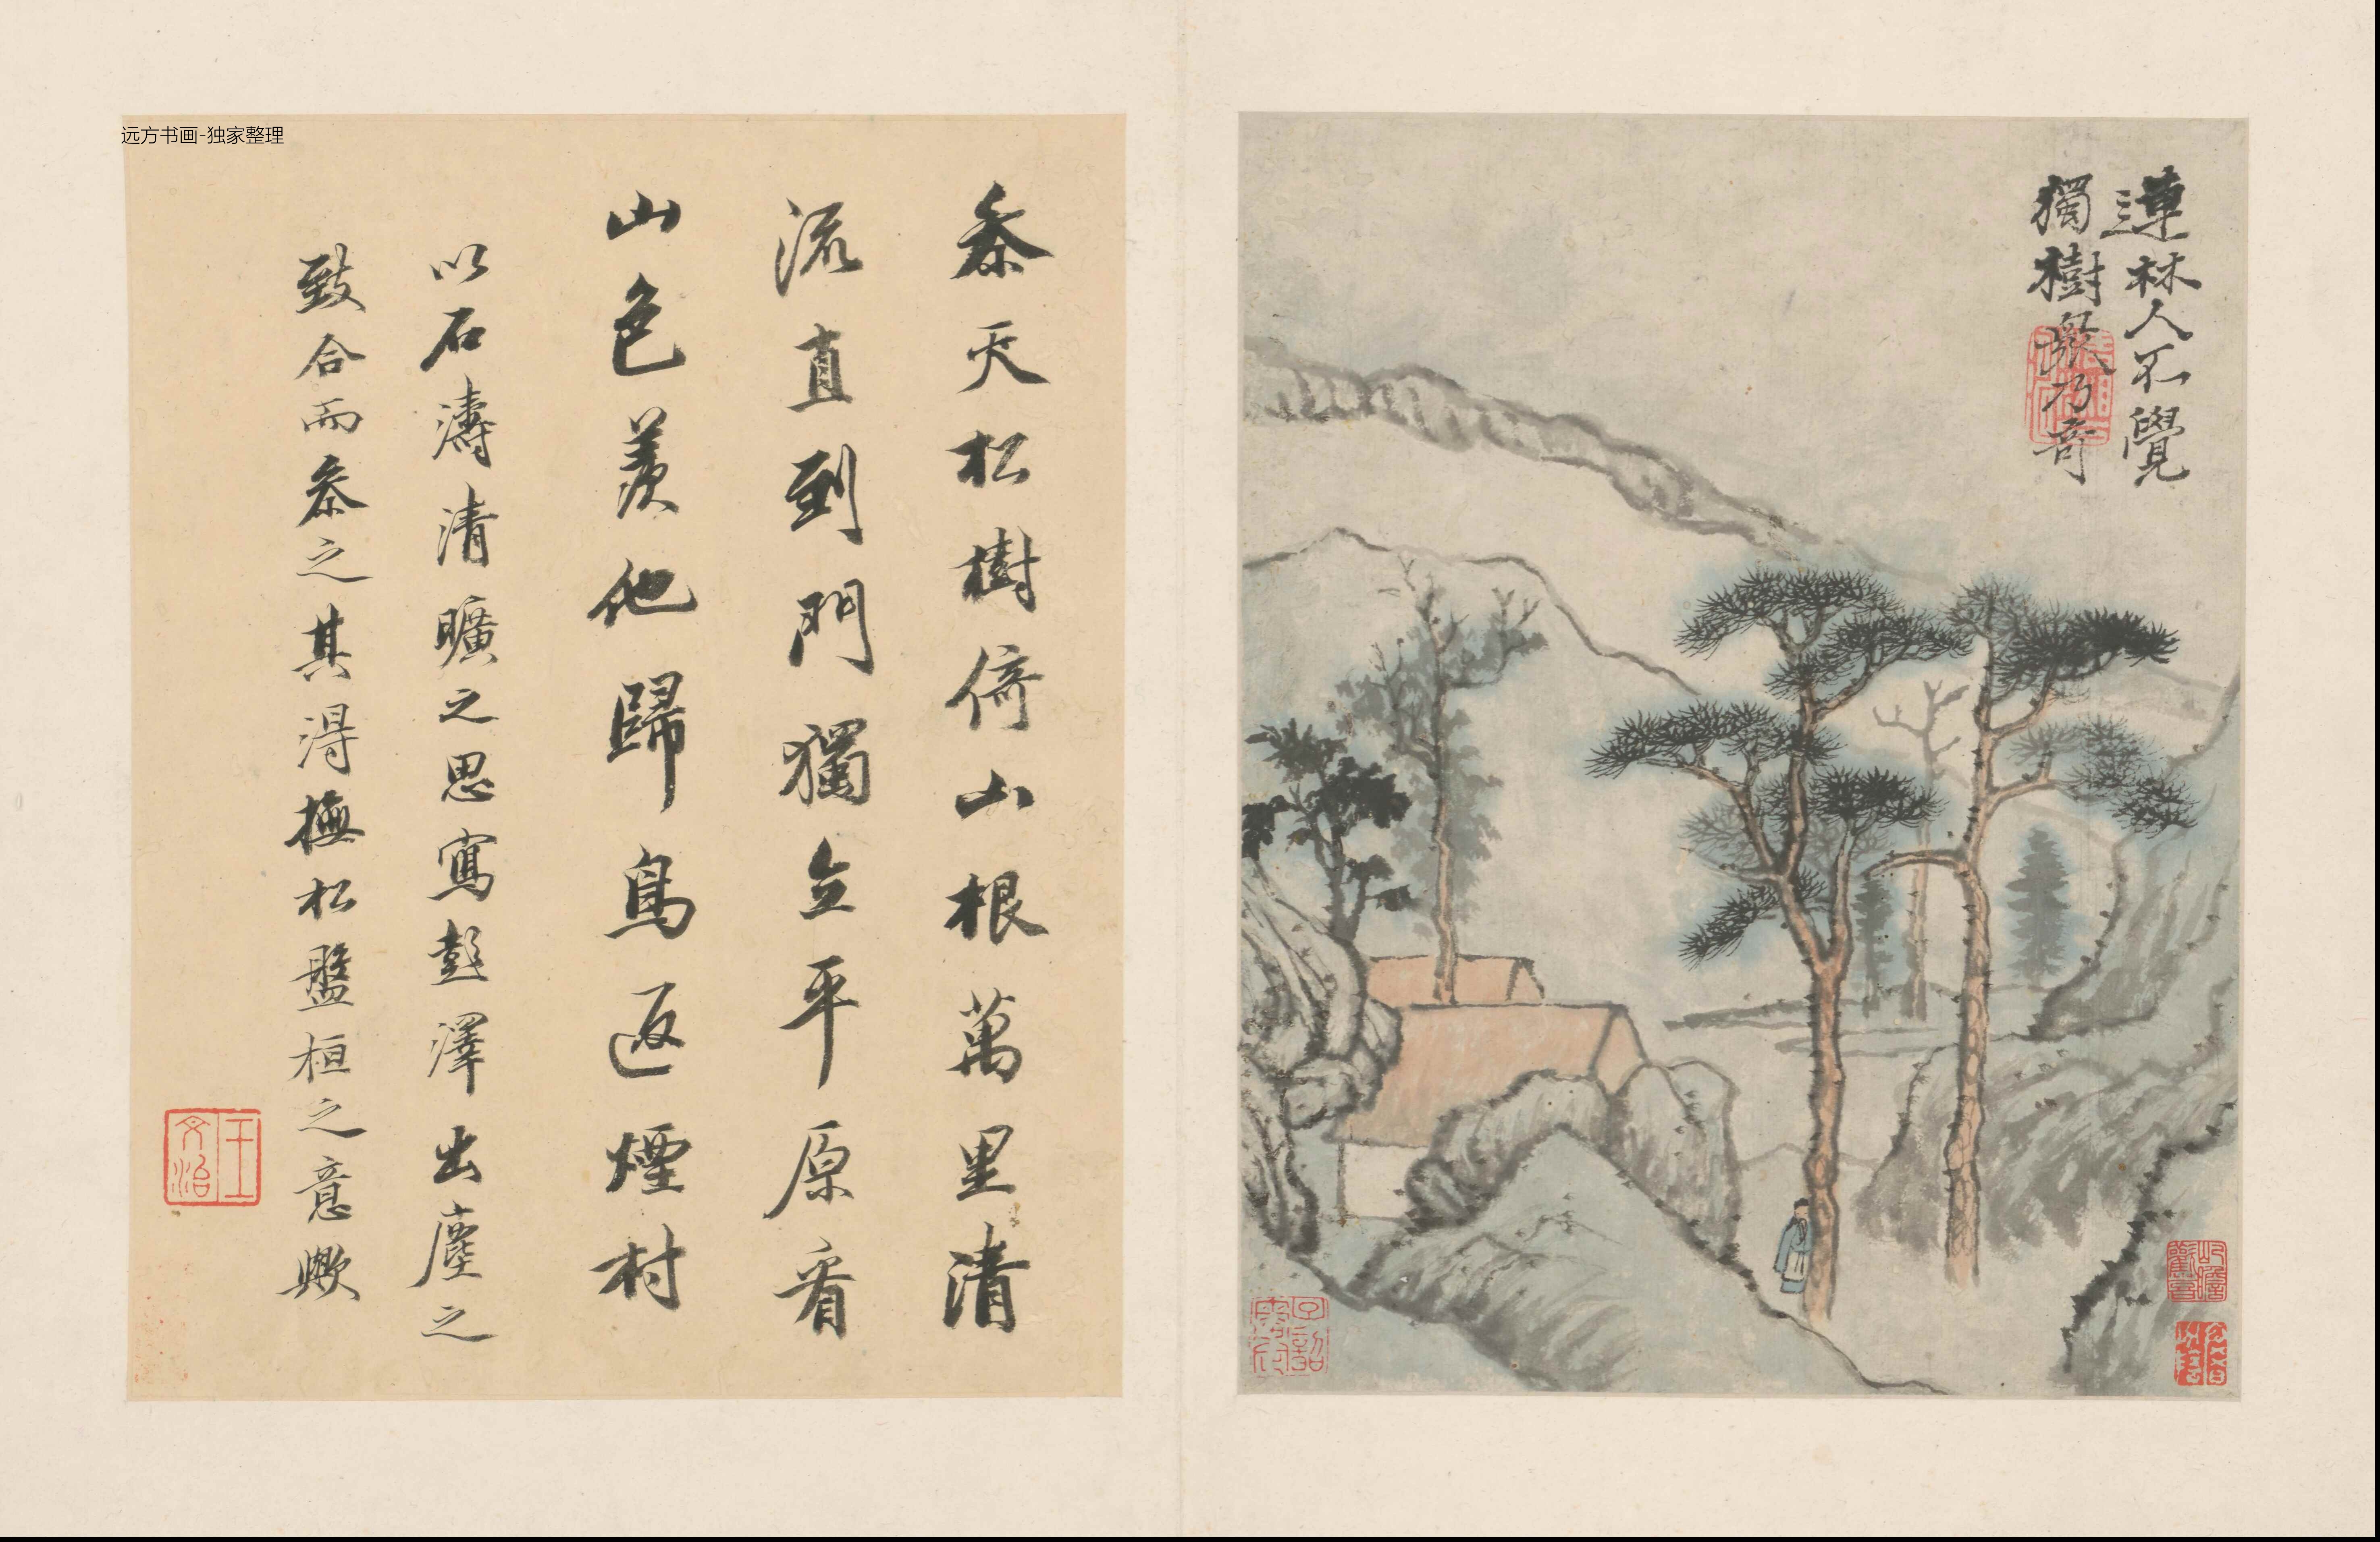 連林人不覺
獨樹衆乃奇
參天松樹倚山根萬里清
流直到門獨立平原看
山色羨他歸鳥返煙村
以石濤清曠之思寫彭澤出塵之
致合而參之其得撫松盤桓之意歟
王文治
远方书画-独家整理